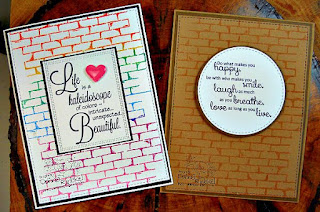 Life
is a
kaleidoscope
of colors...
intricate...
unexpected...
Beautiful.
Do what makes you
happy,
be with who makes you
smile,
laugh as much
as you breathe,
love as long as you
live.